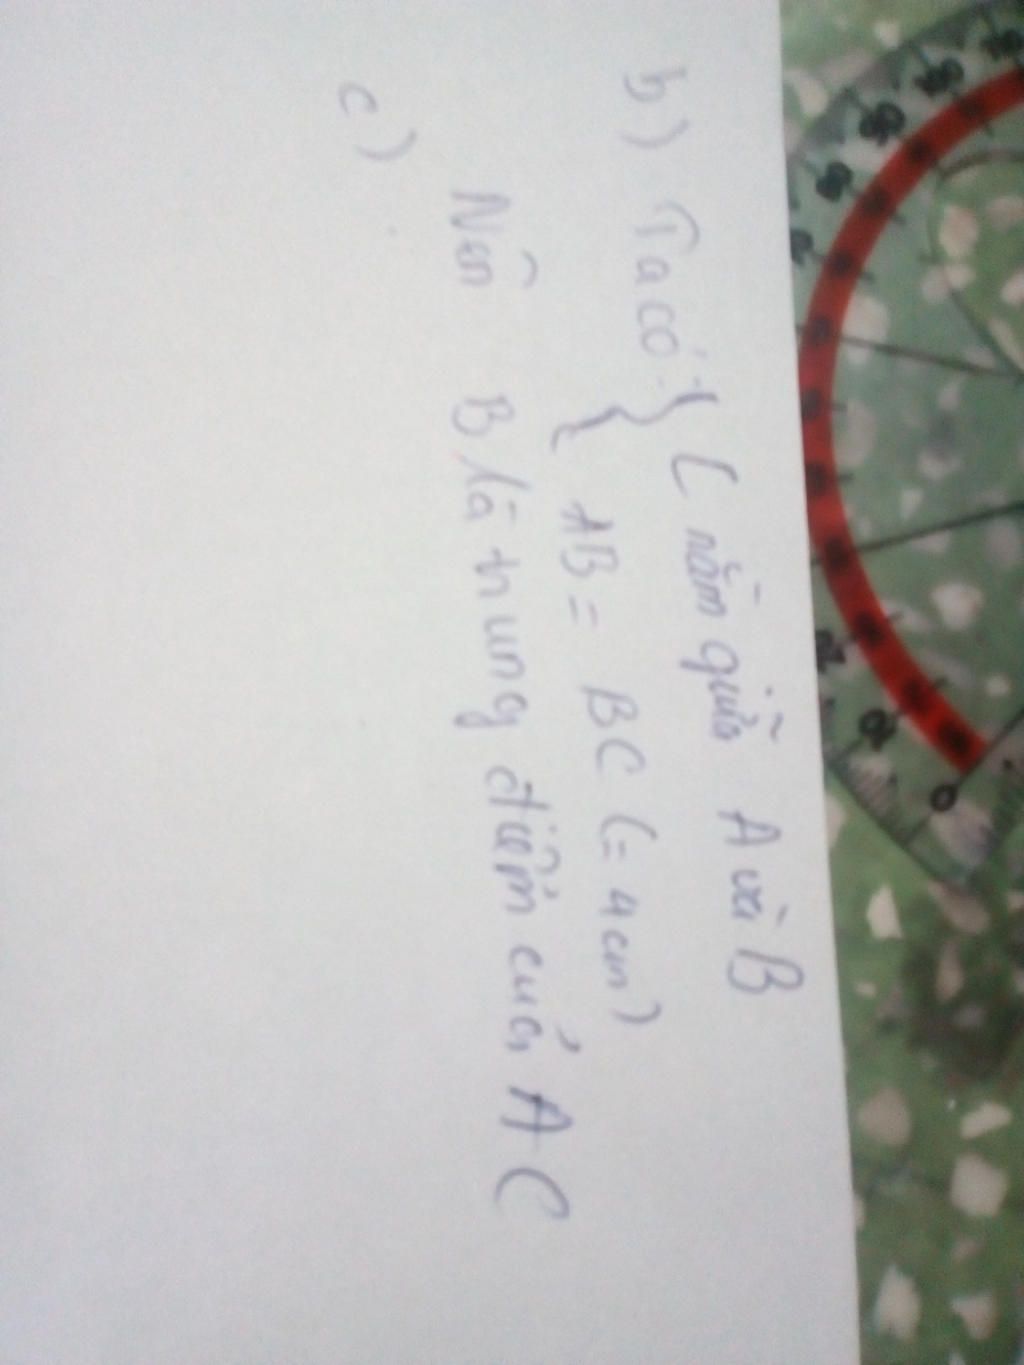 b) Ta có: { C nằm giữa A và B
{ AB = BC (= 4 cm)
Nên B là trung điểm của AC
c)
0